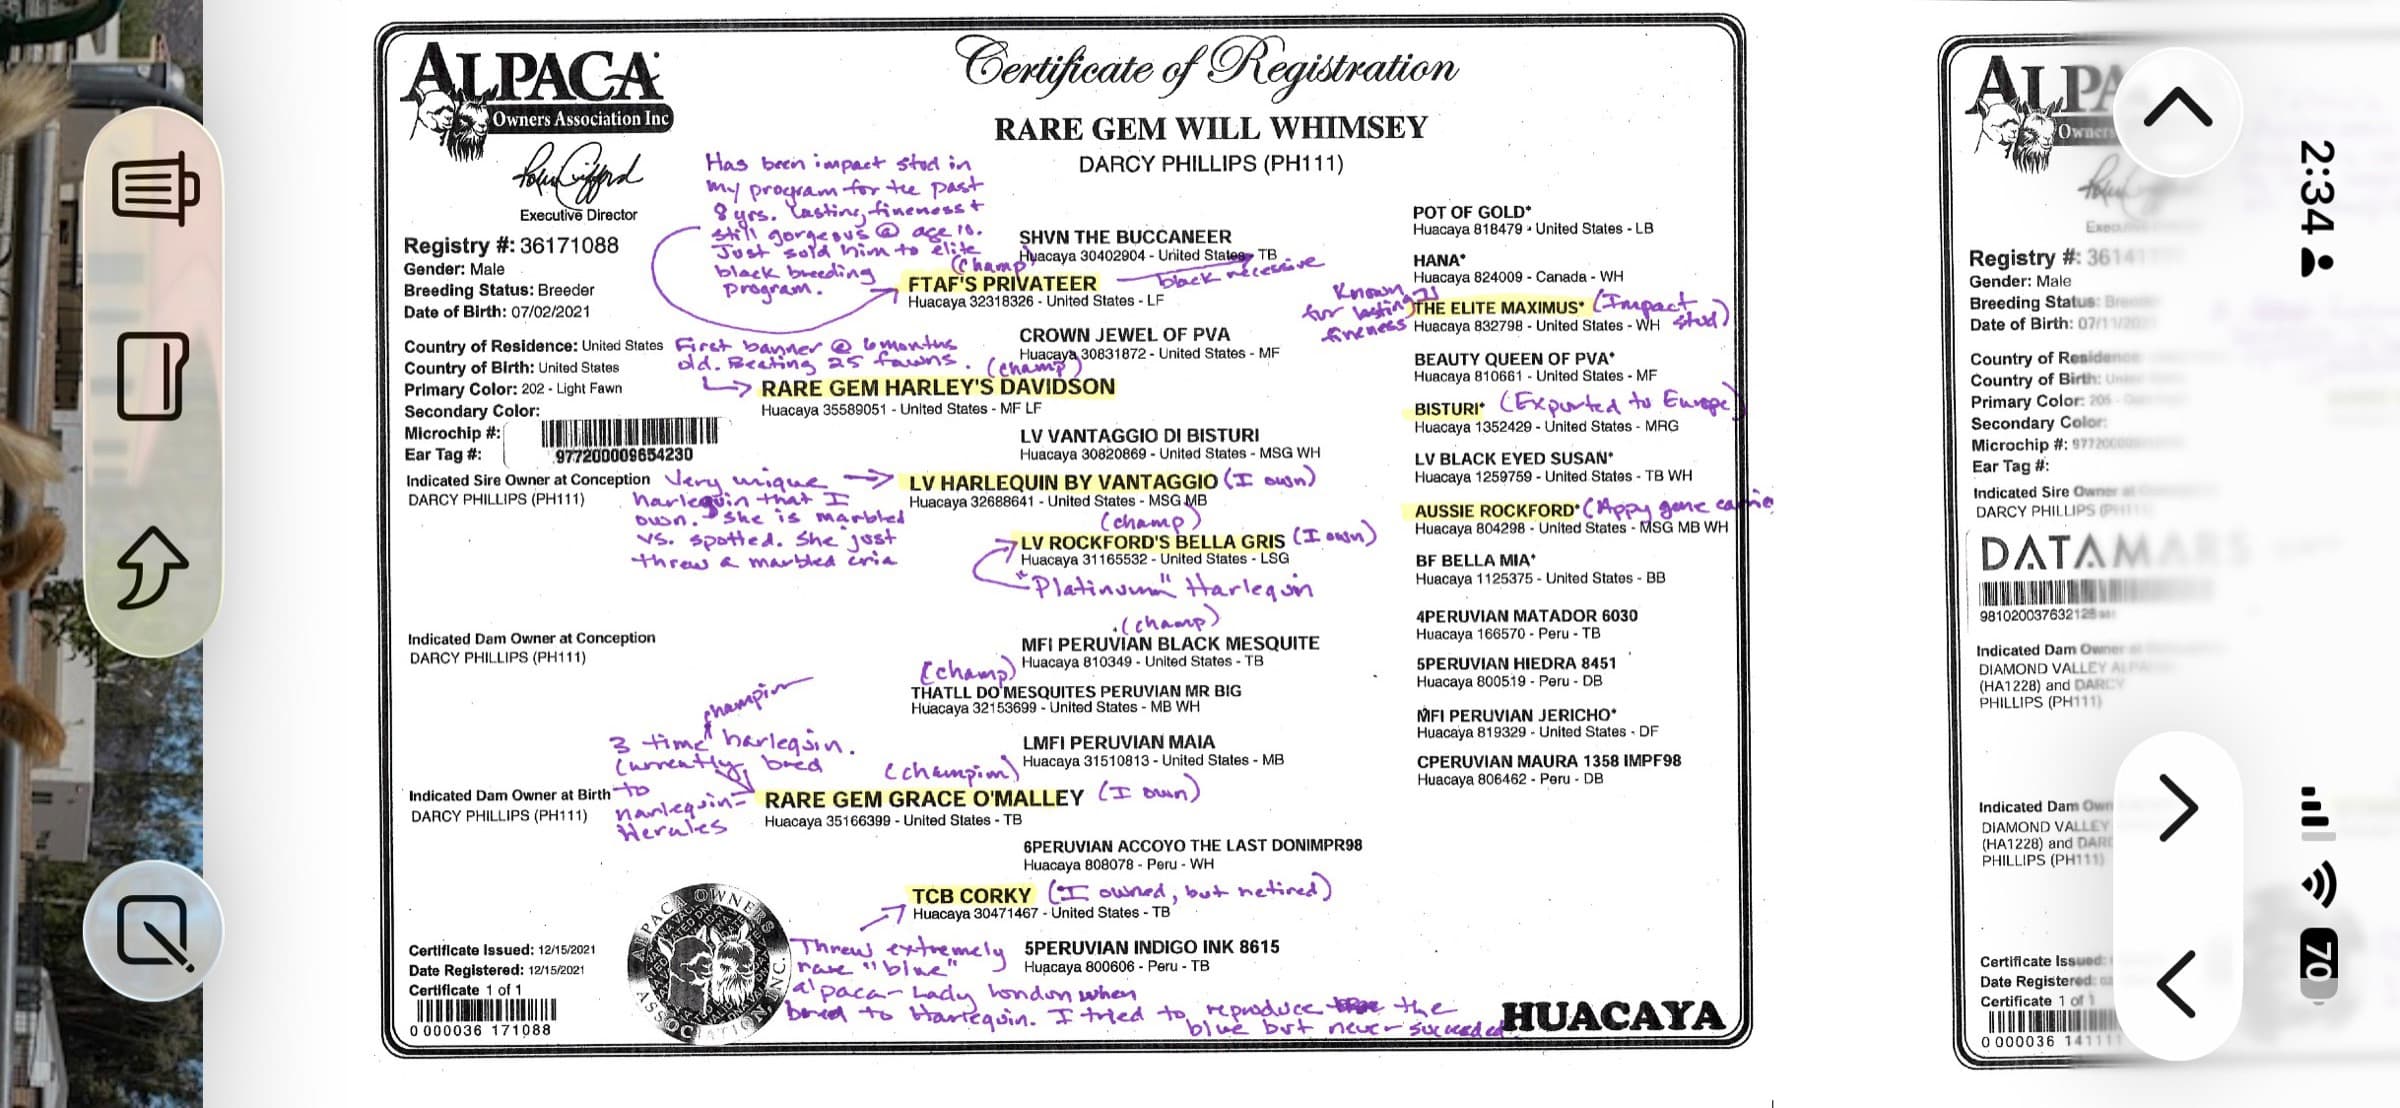 ALPACA
Owners Association Inc
Executive Director
Certificate of Registration
RARE GEM WILL WHIMSEY
DARCY PHILLIPS (PH111)
Registry #: 36171088
Gender: Male
Breeding Status: Breeder
Date of Birth: 07/02/2021
Country of Residence: United States
Country of Birth: United States
Primary Color: 202 - Light Fawn
Secondary Color:
Microchip #:
Ear Tag #:
977200009654230
Indicated Sire Owner at Conception
DARCY PHILLIPS (PH111)
Indicated Dam Owner at Conception
DARCY PHILLIPS (PH111)
Indicated Dam Owner at Birth
DARCY PHILLIPS (PH111)
Certificate Issued: 12/15/2021
Date Registered: 12/15/2021
Certificate 1 of 1
0 000036 171088
Has been impact stud in
my program for the past
8 yrs. Lasting fineness +
still gorgeous @ age 10.
Just sold him to elite
black breeding
program.
First banner @ 6 months
old. Beating 25 fawns.
(champ)
RARE GEM HARLEY'S DAVIDSON
Huacaya 35589051 - United States - MF LF
Very unique
harlequin that I
own. She is marbled
vs. spotted. She just
threw a marbled cria
3 time champion harlequin.
Currently bred
to
harlequin-
Herules
(champion)
RARE GEM GRACE O'MALLEY (I own)
Huacaya 35166399 - United States - TB
SHVN THE BUCCANEER
Huacaya 30402904 - United States - TB
(Champ)
black recessive
FTAF'S PRIVATEER
Huacaya 32318326 - United States - LF
CROWN JEWEL OF PVA
Huacaya 30831872 - United States - MF
LV VANTAGGIO DI BISTURI
Huacaya 30820869 - United States - MSG WH
LV HARLEQUIN BY VANTAGGIO (I own)
Huacaya 32688641 - United States - MSG MB
(champ)
LV ROCKFORD'S BELLA GRIS (I own)
Huacaya 31165532 - United States - LSG
"Platinum" Harlequin
(champ)
MFI PERUVIAN BLACK MESQUITE
Huacaya 810349 - United States - TB
(champ)
THATLL DO MESQUITES PERUVIAN MR BIG
Huacaya 32153699 - United States - MB WH
LMFI PERUVIAN MAIA
Huacaya 31510813 - United States - MB
6PERUVIAN ACCOYO THE LAST DONIMPR98
Huacaya 808078 - Peru - WH
TCB CORKY (I owned, but retired)
Huacaya 30471467 - United States - TB
5PERUVIAN INDIGO INK 8615
Huacaya 800606 - Peru - TB
Threw extremely
rare "blue"
alpaca - Lady London when
bred to Harlequin. I tried to reproduce the
blue but never succeeded
POT OF GOLD*
Huacaya 818479 - United States - LB
HANA*
Huacaya 824009 - Canada - WH
Known
for lasting
fineness
THE ELITE MAXIMUS* (Impact stud)
Huacaya 832798 - United States - WH
BEAUTY QUEEN OF PVA*
Huacaya 810661 - United States - MF
BISTURI* (Exported to Europe)
Huacaya 1352429 - United States - MRG
LV BLACK EYED SUSAN*
Huacaya 1259759 - United States - TB WH
AUSSIE ROCKFORD* (Appy gene
Huacaya 804298 - United States - MSG MB WH
BF BELLA MIA*
Huacaya 1125375 - United States - BB
4PERUVIAN MATADOR 6030
Huacaya 166570 - Peru - TB
5PERUVIAN HIEDRA 8451
Huacaya 800519 - Peru - DB
MFI PERUVIAN JERICHO*
Huacaya 819329 - United States - DF
CPERUVIAN MAURA 1358 IMPF98
Huacaya 806462 - Peru - DB
HUACAYA
ALPA
Owners
Registry #: 36141
Gender: Male
Breeding Status:
Date of Birth: 07/11/
Country of Residence
Country of Birth:
Primary Color:
Secondary Color:
Microchip #:
Ear Tag #:
Indicated Sire Owner
DARCY PHILLIPS
DATAMARS
Indicated Dam Owner
DIAMOND VALLEY
(HA1228) and DARCY
PHILLIPS (PH111)
Indicated Dam
DIAMOND VALLEY
(HA1228) and
PHILLIPS (PH111)
Certificate Issued:
Date Registered:
Certificate 1 of 1
0 000036 14111
2:34
70